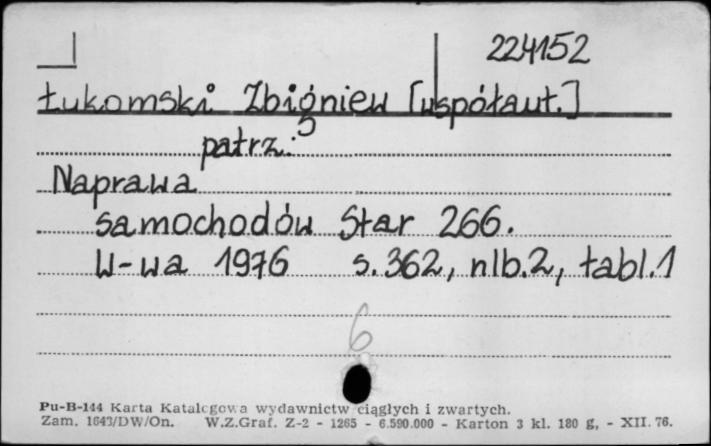 224152
Łukomski Zbigniew [współaut.]
patrz:
Naprawa
samochodów Star 266.
W-wa 1976 s.362, nlb.2, tabl.1
6
Pu-B-144 Karta Katalogowa wydawnictw ciągłych i zwartych.
Zam. 1643/DW/On. W.Z.Graf. Z-2 - 1265 - 6.590.000 - Karton 3 kl. 180 g, - XII. 76.